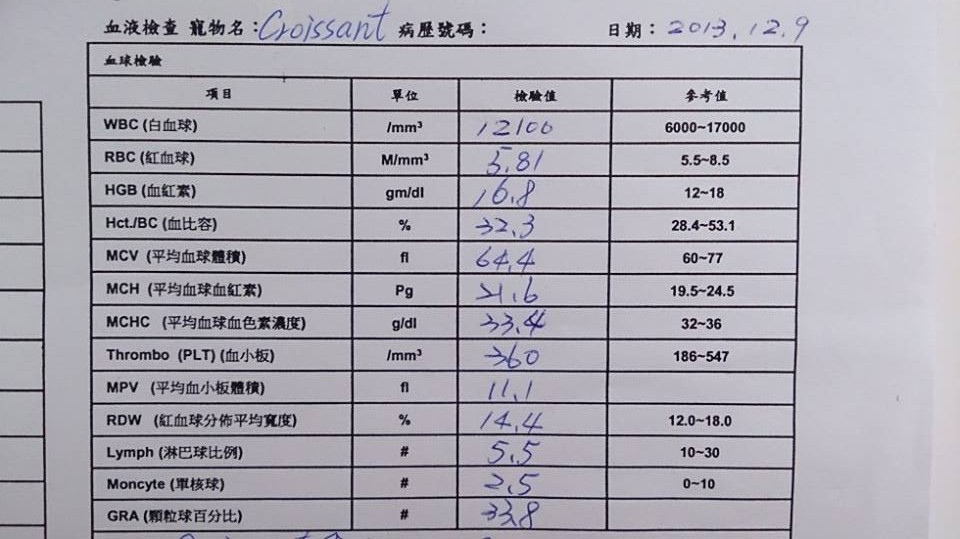 血液檢查 寵物名：Croissant 病歷號碼： 日期：2013.12.9
血球檢驗
項目 單位 檢驗值 參考值
WBC (白血球) /mm³ 12100 6000~17000
RBC (紅血球) M/mm³ 5.81 5.5~8.5
HGB (血紅素) gm/dl 16.8 12~18
Hct./BC (血比容) % 32.3 28.4~53.1
MCV (平均血球體積) fl 64.4 60~77
MCH (平均血球血紅素) Pg 21.6 19.5~24.5
MCHC (平均血球血色素濃度) g/dl 33.4 32~36
Thrombo (PLT) (血小板) /mm³ 360 186~547
MPV (平均血小板體積) fl 11.1
RDW (紅血球分佈平均寬度) % 14.4 12.0~18.0
Lymph (淋巴球比例) # 5.5 10~30
Moncyte (單核球) # 2.5 0~10
GRA (顆粒球百分比) # 33.8